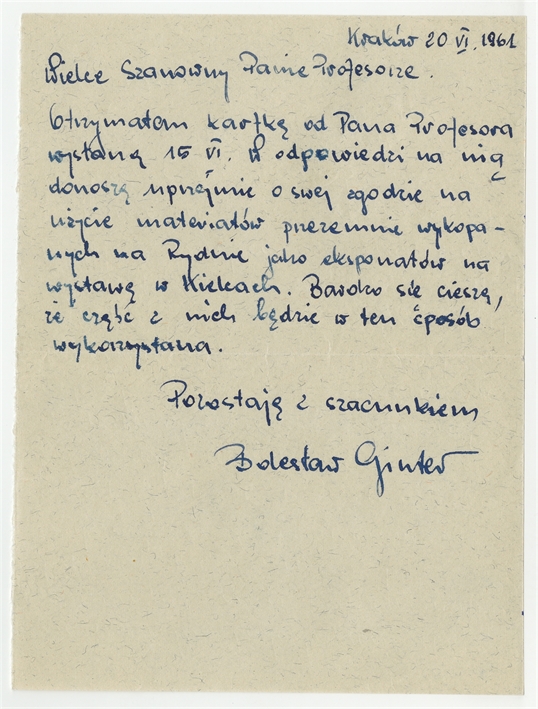 Kraków 20 VI. 1961
Wielce Szanowny Panie Profesorze.
Otrzymałam kartkę od Pana Profesora
wysłaną 15 VI. W odpowiedzi na nią
donoszę uprzejmie o swej zgodzie na
użycie materiałów przezemnie wykopa-
nych na Rydnie jako eksponatów na
wystawę w Kielcach. Bardzo się cieszę,
że część z nich będzie w ten sposób
wykorzystana.
Pozostaję z szacunkiem
Bolesław Ginter